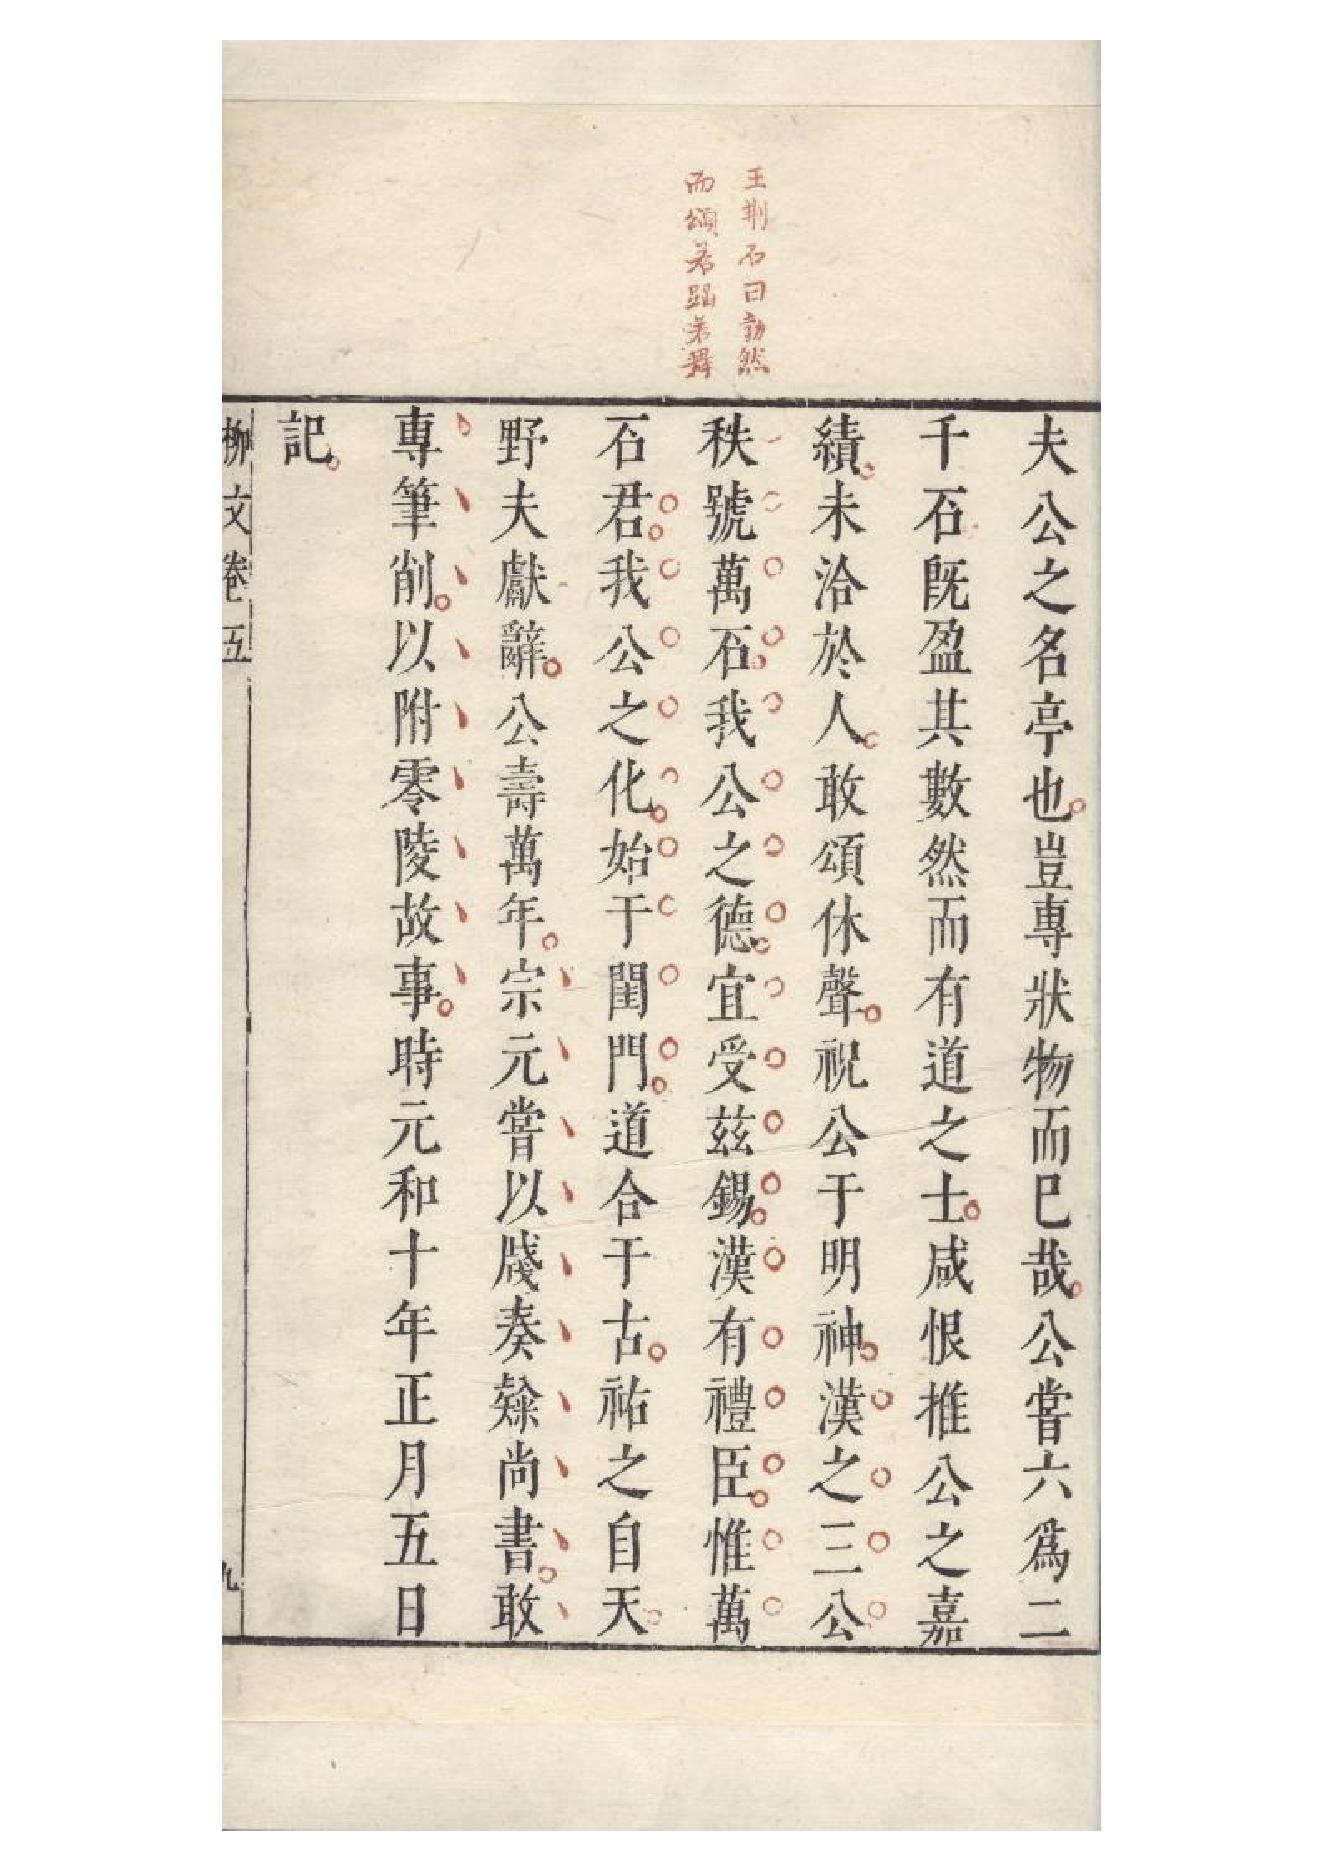 王荆石曰勃然
而頌若蹈若舞
夫公之名亭也豈專狀物而已哉公嘗六爲二
千石旣盈其數然而有道之士咸恨推公之嘉
績未洽於人敢頌休聲祝公于明神漢之三公
秩號萬石我公之德宜受茲錫漢有禮臣惟萬
石君我公之化始于閨門道合于古祐之自天
野夫獻辭公壽萬年宗元嘗以牋奏隸尚書敢
專筆削以附零陵故事時元和十年正月五日
記
柳文卷五
九